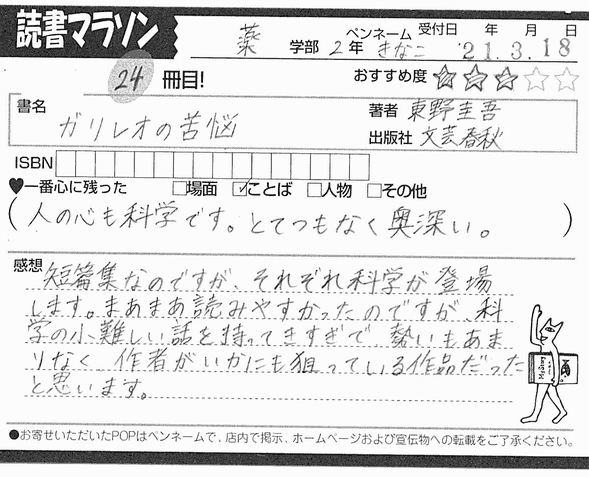 読書マラソン
薬 学部 2年 ペンネーム きなこ 受付日 年 月 日 '21.3.18
24 冊目! おすすめ度 ★★★☆☆
書名 ガリレオの苦悩
著者 東野圭吾
出版社 文芸春秋
ISBN
♥一番心に残った □場面 ☑ことば □人物 □その他
(人の心も科学です。とてつもなく奥深い。)
感想 短篇集なのですが、それぞれ科学が登場
します。まあまあ読みやすかったのですが、科
学の小難しい話を持ってきすぎで 勢いもあま
りなく、作者がいかにも狙っている作品だった
と思います。
●お寄せいただいたPOPはペンネームで、店内で掲示、ホームページおよび宣伝物への転載をご了承ください。